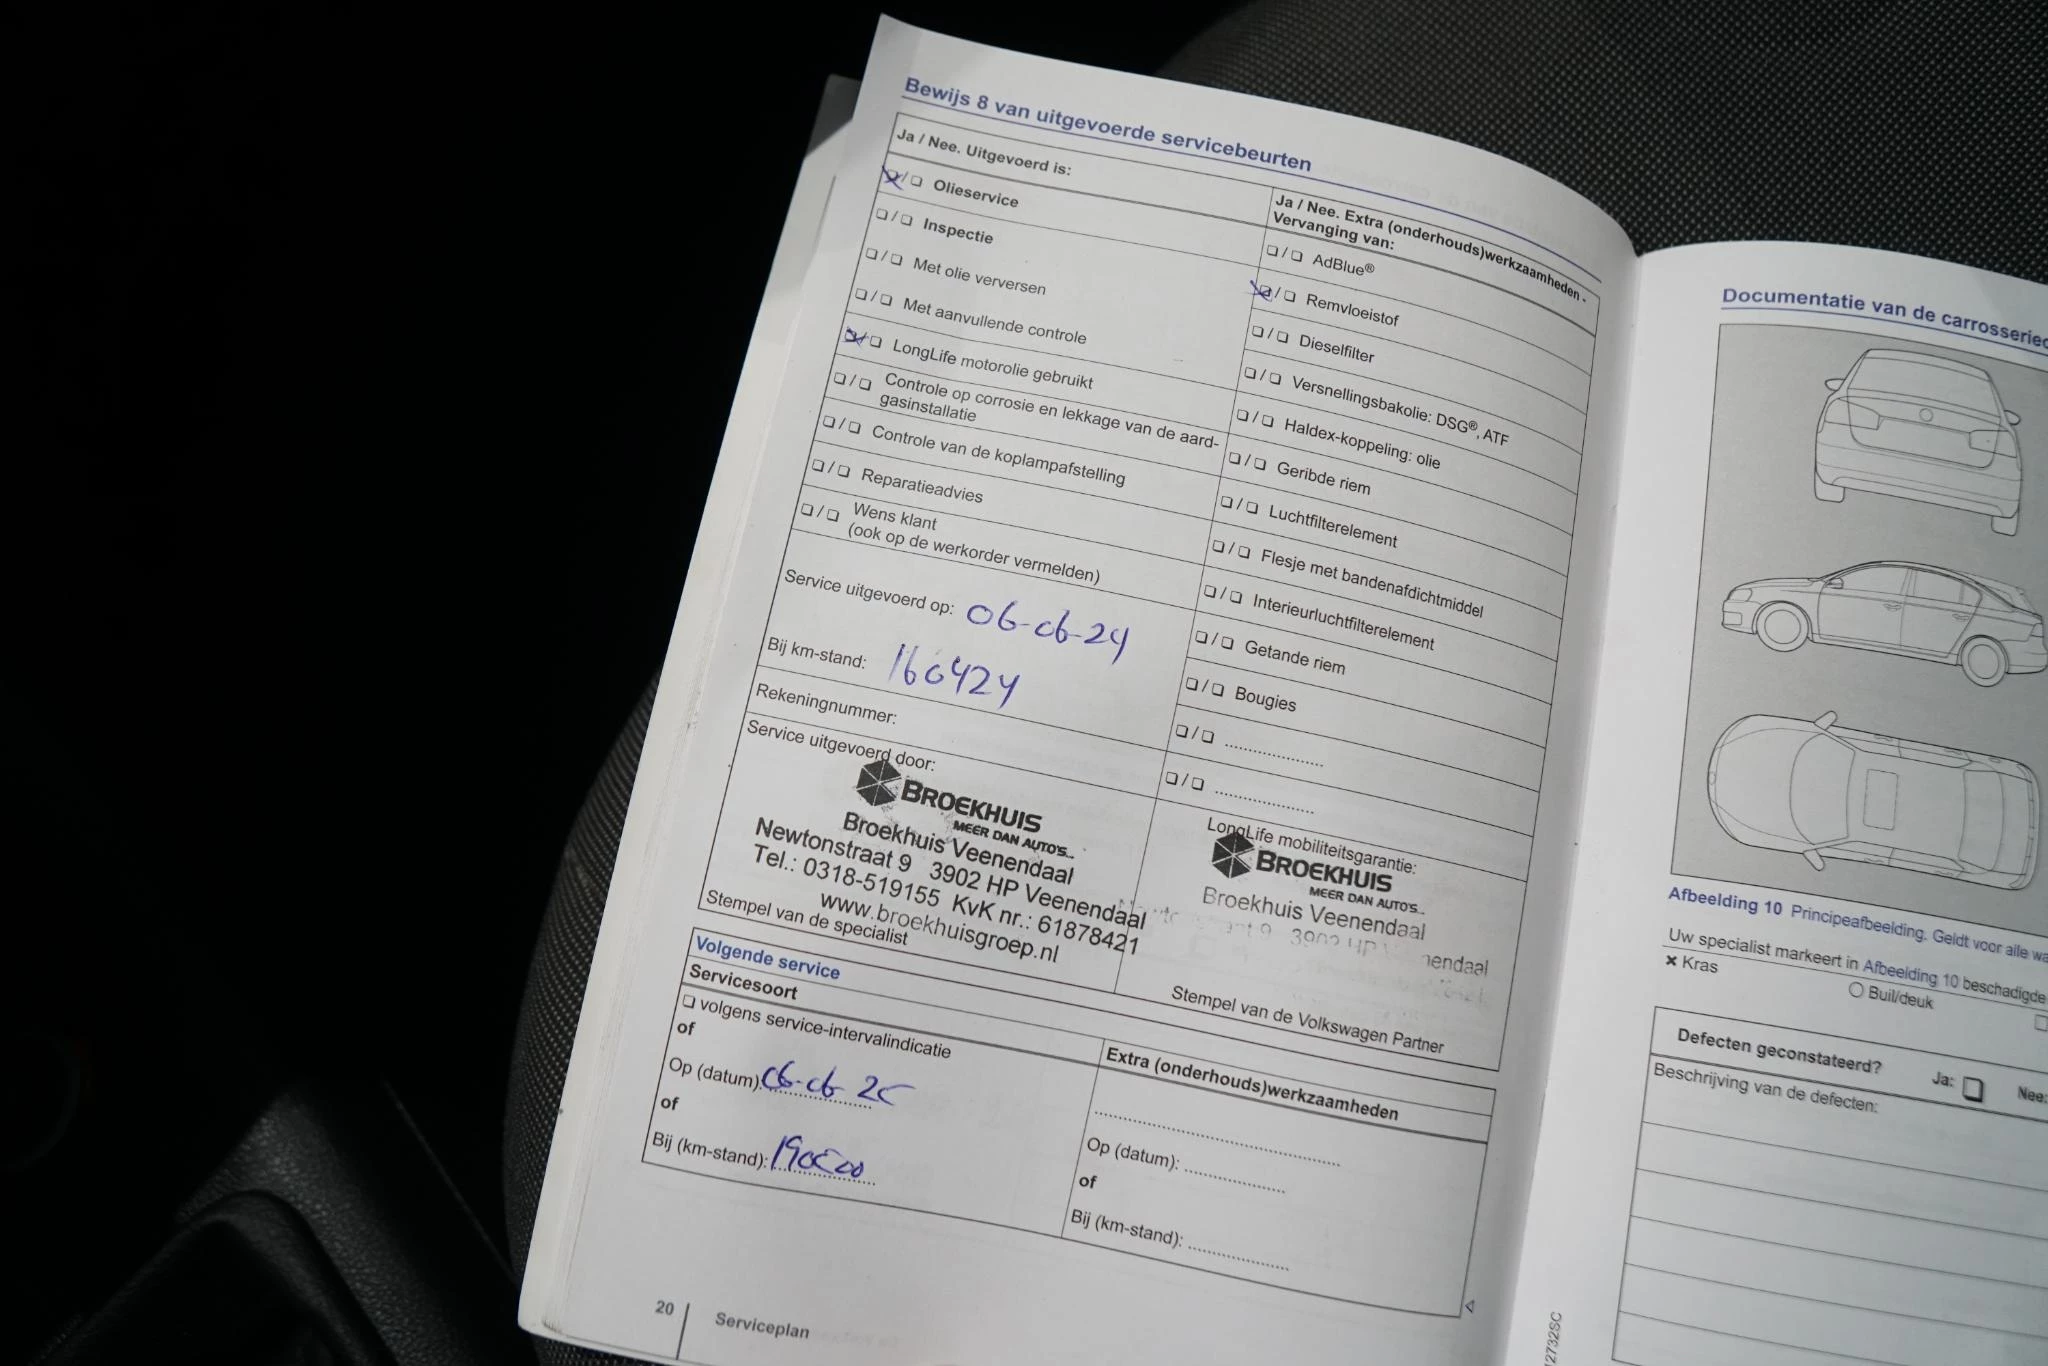 Bewijs 8 van uitgevoerde servicebeurten
Ja / Nee. Uitgevoerd is:
❏/❏ Olieservice
❏/❏ Inspectie
❏/❏ Met olie verversen
❏/❏ Met aanvullende controle
❏/❏ LongLife motorolie gebruikt
❏/❏ Controle op corrosie en lekkage van de aard-
gasinstallatie
❏/❏ Controle van de koplampafstelling
❏/❏ Reparatieadvies
❏/❏ Wens klant
(ook op de werkorder vermelden)
Service uitgevoerd op: 06-06-24
Bij km-stand: 160424
Rekeningnummer:
Service uitgevoerd door:
BROEKHUIS
MEER DAN AUTO'S...
Broekhuis Veenendaal
Newtonstraat 9 3902 HP Veenendaal
Tel.: 0318-519155 KvK nr.: 61878421
www.broekhuisgroep.nl
Stempel van de specialist
Ja / Nee. Extra (onderhouds)werkzaamheden -
Vervanging van:
❏/❏ AdBlue®
❏/❏ Remvloeistof
❏/❏ Dieselfilter
❏/❏ Versnellingsbakolie: DSG®, ATF
❏/❏ Haldex-koppeling: olie
❏/❏ Geribde riem
❏/❏ Luchtfilterelement
❏/❏ Flesje met bandenafdichtmiddel
❏/❏ Interieurluchtfilterelement
❏/❏ Getande riem
❏/❏ Bougies
❏/❏ ....................
❏/❏ ....................
LongLife mobiliteitsgarantie:
BROEKHUIS
MEER DAN AUTO'S...
Broekhuis Veenendaal
9 3902 HP
Stempel van de Volkswagen Partner
Volgende service
Servicesoort
❏ volgens service-intervalindicatie
of
Op (datum): 06-06-25
of
Bij (km-stand): 190000
Extra (onderhouds)werkzaamheden
..................................................
Op (datum): ....................
of
Bij (km-stand): ....................
20 Serviceplan
Documentatie van de
Afbeelding 10 Principeafbeelding. Geldt voor alle
Uw specialist markeert in Afbeelding 10 beschadigde
× Kras
○ Buil/deuk
Defecten geconstateerd? Ja: ❏ Nee:
Beschrijving van de defecten:
12732SC